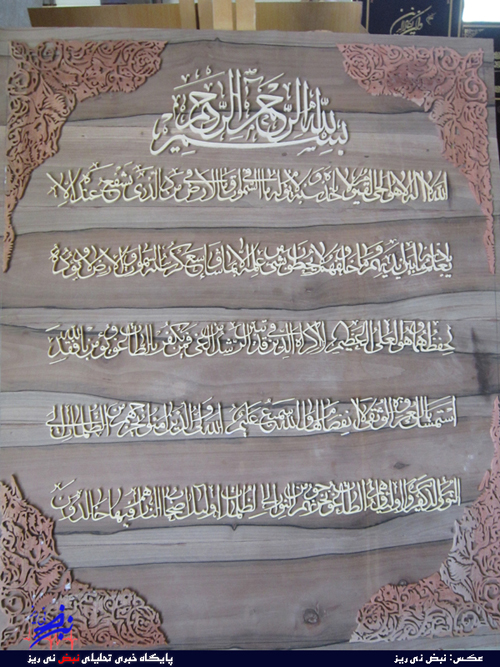 بسم الله الرحمن الرحیم
الله لا اله الا هو الحی القیوم لا تاخذه سنة و لا نوم له ما فی السموات و ما فی الارض من ذا الذی یشفع عنده الا
یعلم ما بین ایدیهم و ما خلفهم و لا یحیطون بشی من علمه الا بما شا وسع کرسیه السموات و الارض و لا یوده
حفظهما و هو العلی العظیم لا اکراه فی الدین قد تبین الرشد من الغی فمن یکفر بالطاغوت و یومن بالله فقد
استمسک بالعروة الوثقی لا انفصام لها و الله سمیع علیم الله ولی الذین امنوا یخرجهم من الظلمات الی
النور و الذین کفروا اولیاوهم الطاغوت یخرجونهم من النور الی الظلمات اولئک اصحاب النار هم فیها خالدون
عکس: نبض نی ریز
پایگاه خبری تحلیلی نبض نی ریز